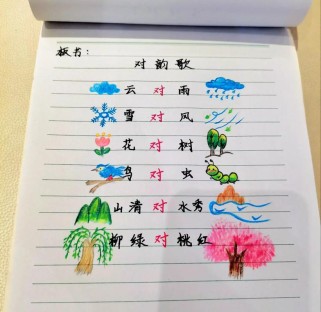 板书：
对韵歌
云对雨
雪对风
花对树
鸟对虫
山清对水秀
柳绿对桃红